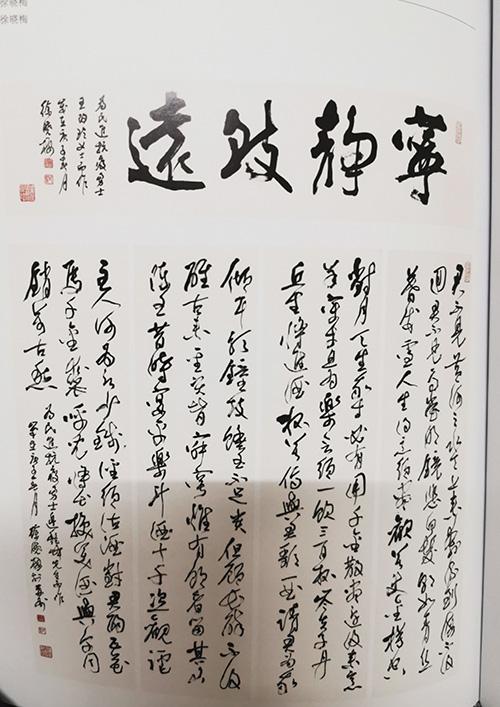 徐晓梅
徐晓梅
寧靜致遠
為民進抗疫勇士
女士而作
歲在庚子春月
徐曉梅
君不見黃河之水天上來奔流到海不復
回君不見高堂明鏡悲白髮朝如青絲
暮成雪人生得意須盡歡莫使金樽空
對月天生我材必有用千金散盡還復來烹
羊宰牛且為樂會須一飲三百杯岑夫子丹
丘生將進酒杯莫停與君歌一曲請君為我
傾耳聽鐘鼓饌玉不足貴但願長醉不復
醒古來聖賢皆寂寞惟有飲者留其名
陳王昔時宴平樂斗酒十千恣歡謔
主人何為言少錢徑須沽酒對君酌五花
馬千金裘呼兒將出換美酒與爾同
銷萬古愁
為民進抗疫勇士先生作
徐曉梅